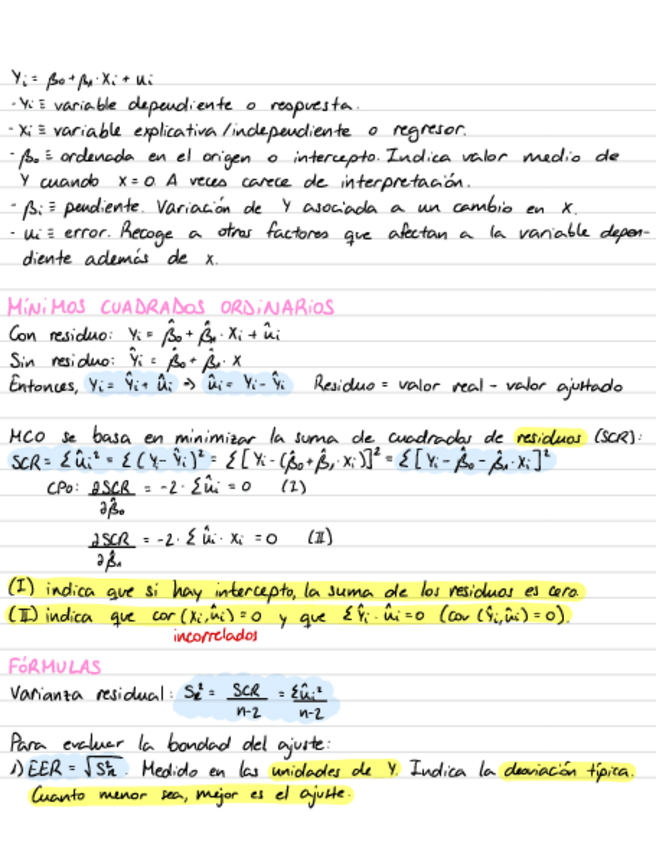 Yi = β0 + β1 · Xi + ui
- Yi ≡ variable dependiente o respuesta.
- Xi ≡ variable explicativa / independiente o regresor.
- β0 ≡ ordenada en el origen o intercepto. Indica valor medio de
Y cuando x = 0. A veces carece de interpretación.
- β1 ≡ pendiente. Variación de Y asociada a un cambio en X.
- ui ≡ error. Recoge a otros factores que afectan a la variable depen-
diente además de x.
MÍNIMOS CUADRADOS ORDINARIOS
Con residuo: Yi = β̂0 + β̂1 · Xi + ûi
Sin residuo: Ŷi = β̂0 + β̂1 · X
Entonces, Yi = Ŷi + ûi → ûi = Yi - Ŷi Residuo = valor real - valor ajustado
MCO se basa en minimizar la suma de cuadrados de residuos (SCR):
SCR = Σûi² = Σ(Yi - Ŷi)² = Σ[Yi - (β̂0 + β̂1 · Xi)]² = Σ[Yi - β̂0 - β̂1 · Xi]²
CPO: ∂SCR/∂β̂0 = -2 · Σûi = 0 (I)
∂SCR/∂β̂1 = -2 · Σ ûi · Xi = 0 (II)
(I) indica que si hay intercepto, la suma de los residuos es cero.
(II) indica que cor (Xi, ûi) = 0 y que ΣŶi · ûi = 0 (cov (Ŷi, ûi) = 0).
incorrelados
FÓRMULAS
Varianza residual: SR² = SCR/n-2 = Σûi²/n-2
Para evaluar la bondad del ajuste:
1) EER = √SR². Medido en las unidades de Y. Indica la desviación típica.
Cuanto menor sea, mejor es el ajuste.